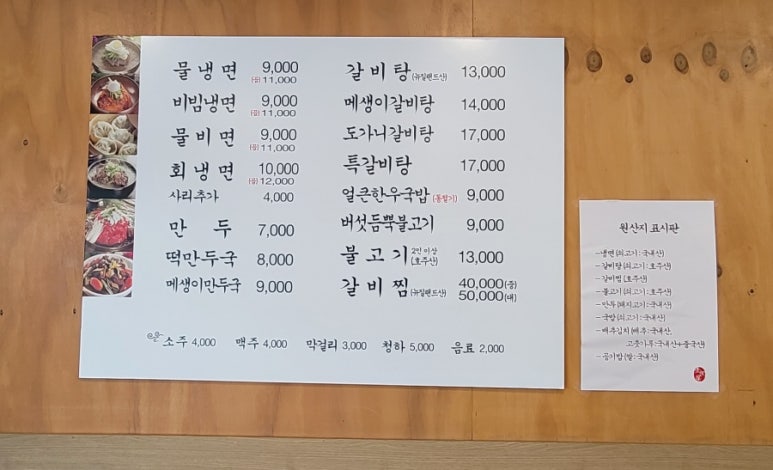 물냉면 9,000
(곱) 11,000
비빔냉면 9,000
(곱) 11,000
물비면 9,000
(곱) 11,000
회냉면 10,000
(곱) 12,000
사리추가 4,000
만두 7,000
떡만두국 8,000
메생이만두국 9,000
갈비탕 (뉴질랜드산) 13,000
메생이갈비탕 14,000
도가니갈비탕 17,000
특갈비탕 17,000
얼큰한우국밥 9,000
버섯듬뿍불고기 9,000
불고기 2인 이상 (호주산) 13,000
갈비찜 (뉴질랜드산) 40,000(중)
50,000(대)
소주 4,000 맥주 4,000 막걸리 3,000 청하 5,000 음료 2,000
원산지 표시판
- 냉면 (쇠고기 : 국내산)
- 갈비탕 (쇠고기 : 호주산)
- 갈비찜 (호주산)
- 불고기 (쇠고기 : 호주산)
- 만두 (돼지고기 : 국내산)
- 국밥 (쇠고기 : 국내산)
- 배추김치 (배추 : 국내산,
고춧가루 : 국내산+중국산)
- 공기밥 (쌀 : 국내산)